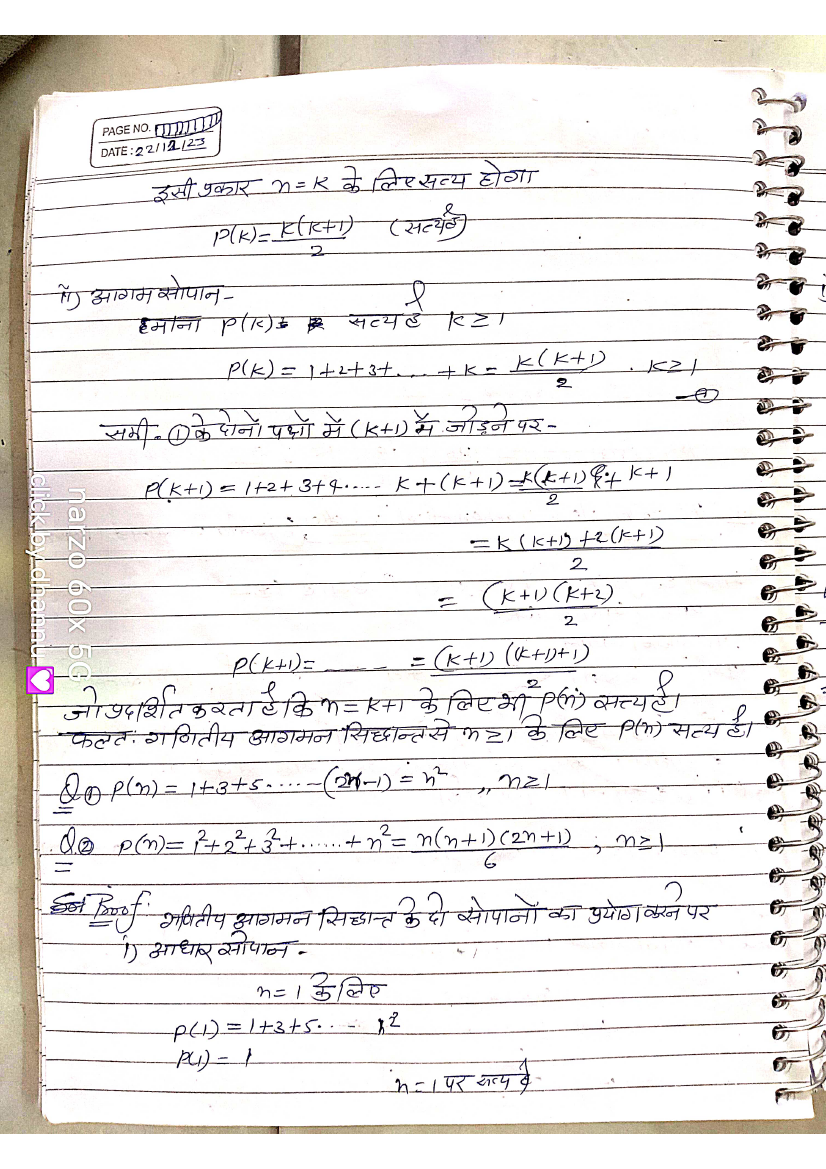 PAGE NO.
DATE: 22/12/23
इसी प्रकार n=K के लिए सत्य होगा
P(K)= K(K+1)/2 (सत्य है)
ii) आगम सोपान-
माना P(K) सत्य है K≥1
P(K) = 1+2+3+.... +K = K(K+1)/2 . K≥1
—①
समी. ① के दोनों पक्षों में (K+1) में जोड़ने पर-
P(K+1) = 1+2+3+4..... K+(K+1) = K(K+1)/2 + K+1
= K(K+1)+2(K+1)/2
= (K+1)(K+2)/2
P(K+1)= ____ = (K+1)((K+1)+1)/2
जो प्रदर्शित करता है कि n=K+1 के लिए भी P(n) सत्य है।
फलतः गणितीय आगमन सिद्धान्त से n≥1 के लिए P(n) सत्य है।
Q① P(n) = 1+3+5......(2n-1) = n² ,, n≥1
Q② P(n)= 1²+2²+3²+......+n²= n(n+1)(2n+1)/6 ; n≥1
Proof: गणितीय आगमन सिद्धान्त के दो सोपानों का प्रयोग करने पर
i) आधार सोपान-
n=1 के लिए
P(1) = 1+3+5... 1²
P(1) = 1
n=1 पर सत्य है
marzo 60x 5G
click by dhannu